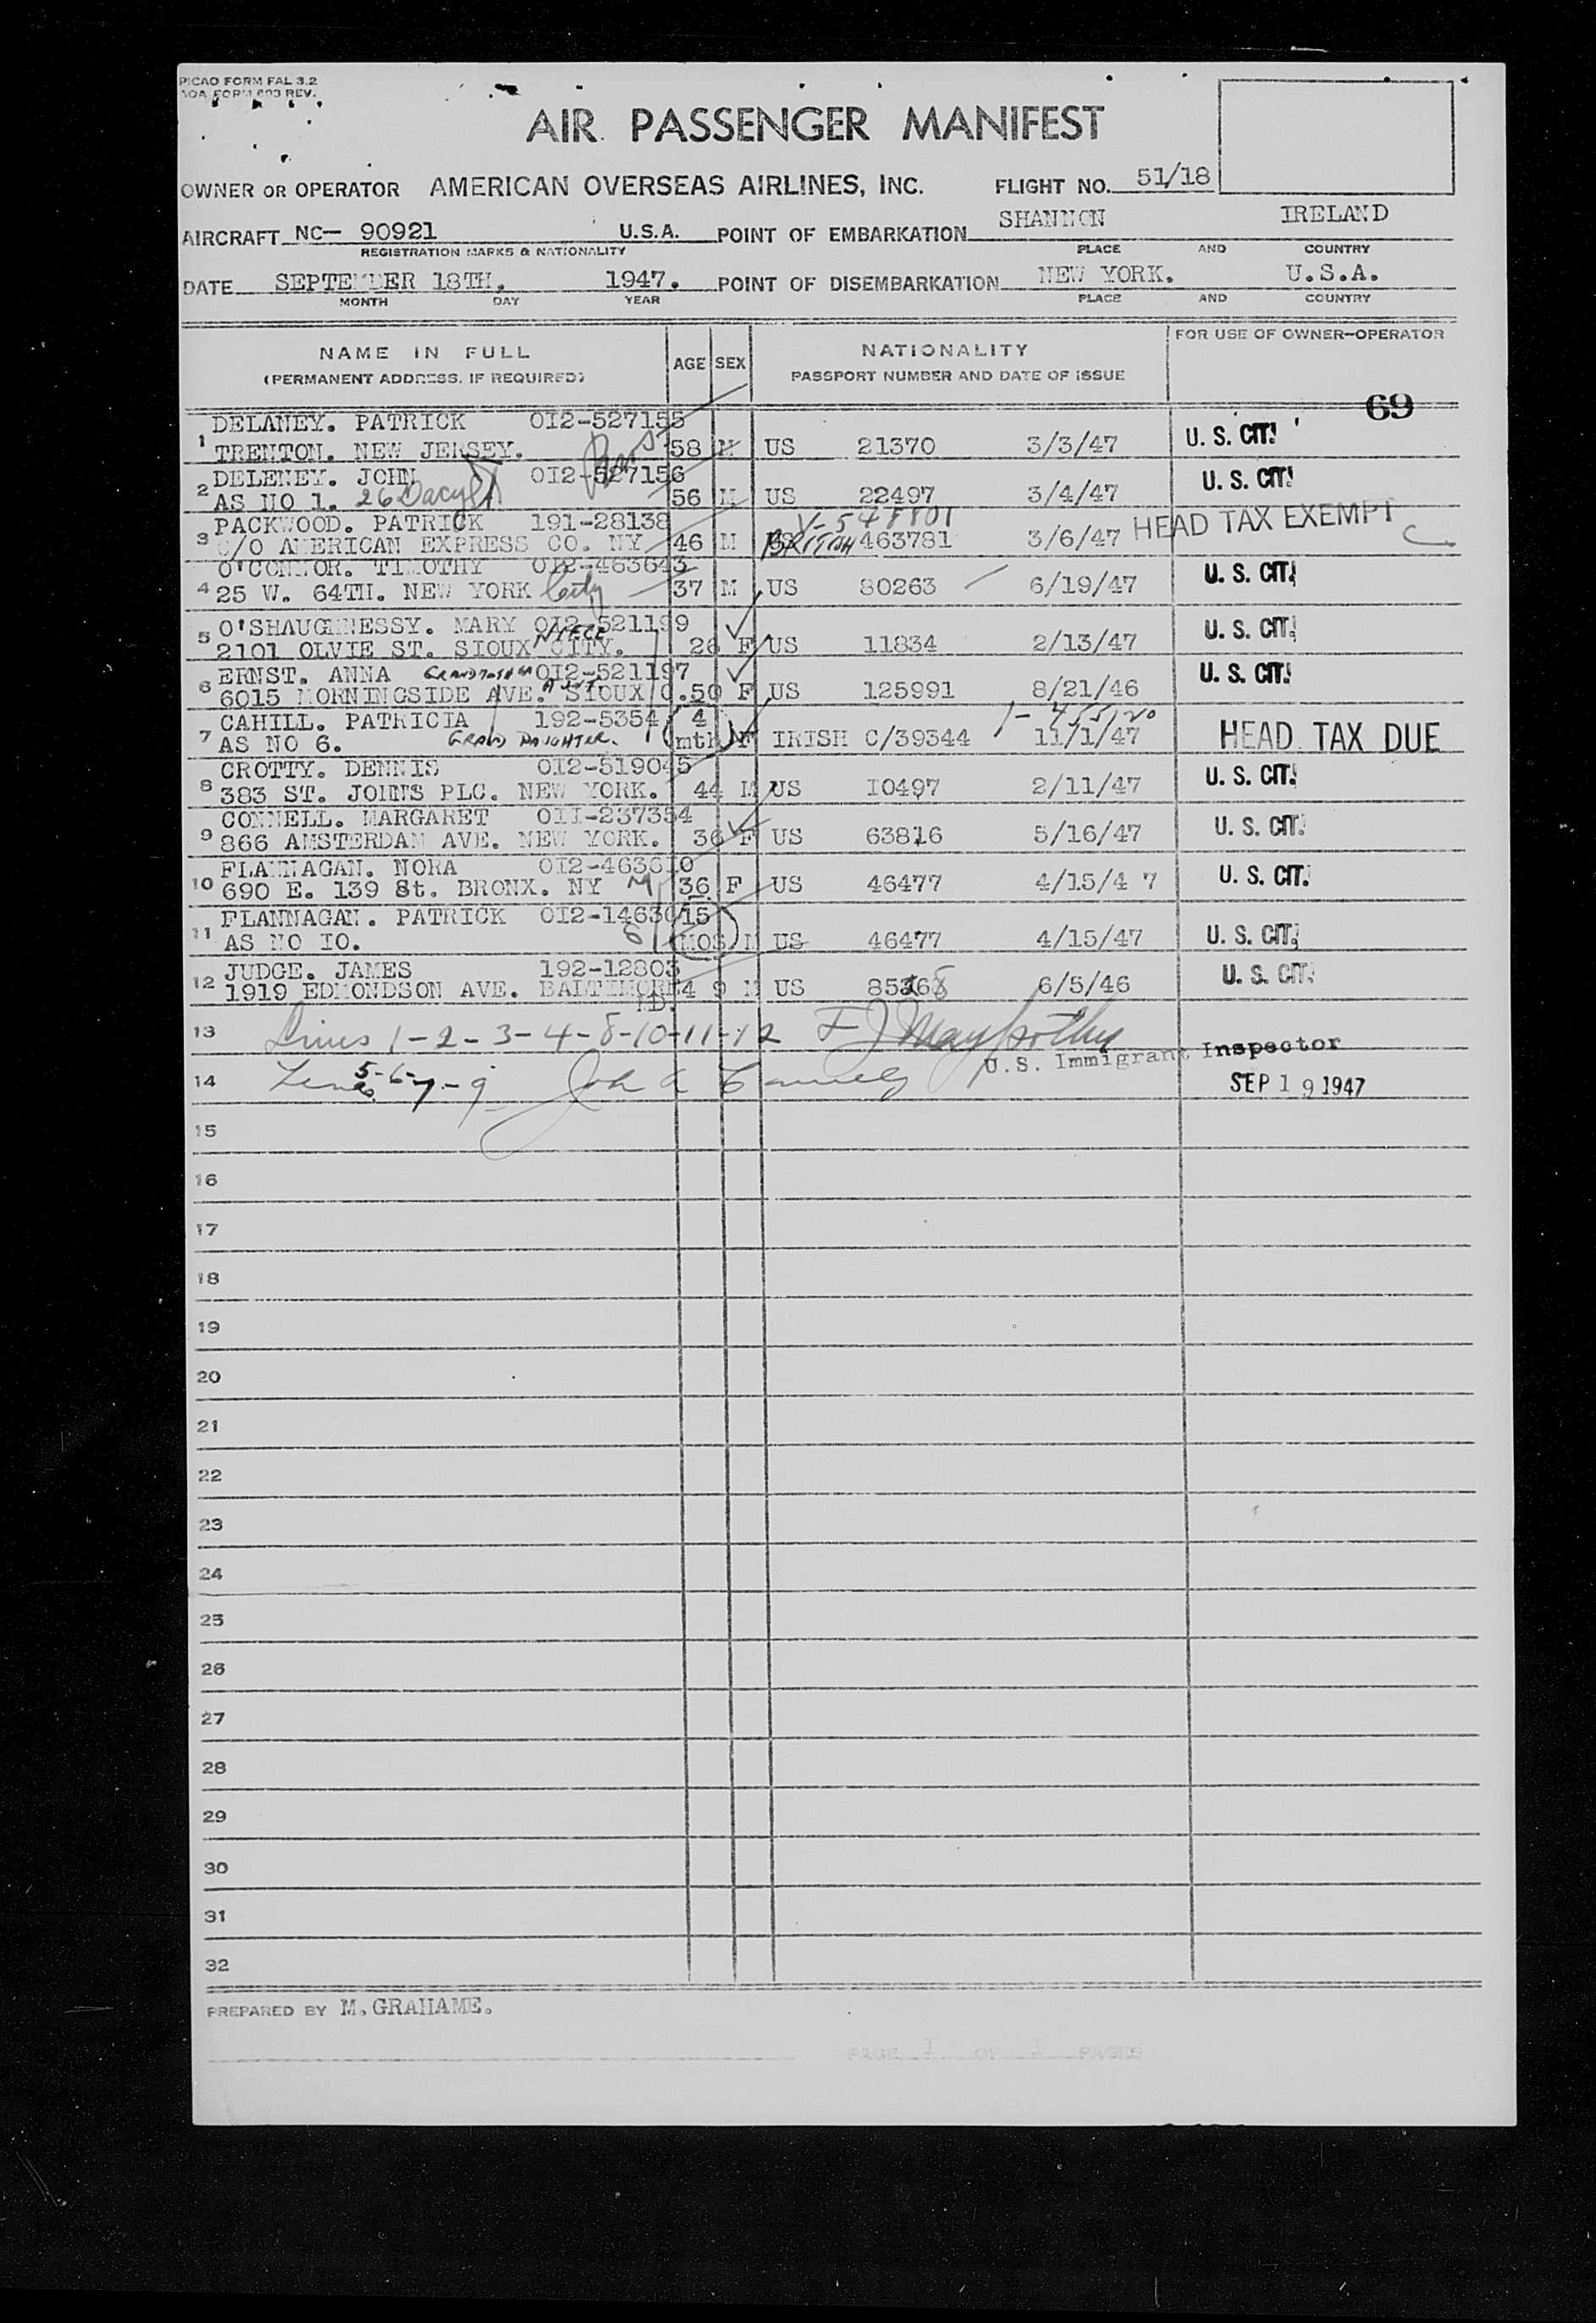 PICAO FORM FAL 3.2
AOA FORM 603 REV.
AIR PASSENGER MANIFEST
OWNER OR OPERATOR AMERICAN OVERSEAS AIRLINES, INC. FLIGHT NO. 51/18
AIRCRAFT NC— 90921 U.S.A. POINT OF EMBARKATION SHANNON IRELAND
REGISTRATION MARKS & NATIONALITY PLACE AND COUNTRY
DATE SEPTEMBER 18TH. 1947. POINT OF DISEMBARKATION NEW YORK. U.S.A.
MONTH DAY YEAR PLACE AND COUNTRY
NAME IN FULL AGE SEX NATIONALITY FOR USE OF OWNER—OPERATOR
(PERMANENT ADDRESS, IF REQUIRED) PASSPORT NUMBER AND DATE OF ISSUE
69
DELANEY. PATRICK OI2-527155
1 TRENTON. NEW JERSEY. 58 M US 21370 3/3/47 U. S. CIT.
DELENEY. JOHN OI2-527156
2 AS NO 1. 26 Dacy St 56 M US 22497 3/4/47 U. S. CIT.
PACKWOOD. PATRICK 191-28138 V-548801
3 C/O AMERICAN EXPRESS CO. NY 46 M BRITISH 463781 3/6/47 HEAD TAX EXEMPT C
O'CONNOR. TIMOTHY OI2-463643
4 25 W. 64TH. NEW YORK City 37 M US 80263 6/19/47 U. S. CIT.
O'SHAUGHNESSY. MARY OI2-521199
5 2101 OLVIE ST. SIOUX CITY. NIECE 26 F US 11834 2/13/47 U. S. CIT.
ERNST. ANNA GRANDMOTHER OI2-521197
6 6015 MORNINGSIDE AVE. AUNT SIOUX C. 50 F US 125991 8/21/46 U. S. CIT.
CAHILL. PATRICIA 192-5354 4
7 AS NO 6. GRAND DAUGHTER. mth F IRISH C/39344 11/1/47 HEAD TAX DUE
CROTTY. DENNIS OI2-519045
8 383 ST. JOHNS PLC. NEW YORK. 44 M US I0497 2/11/47 U. S. CIT.
CONNELL. MARGARET OII-237354
9 866 AMSTERDAM AVE. NEW YORK. 36 F US 63816 5/16/47 U. S. CIT.
FLANNAGAN. NORA OI2-463610
10 690 E. 139 St. BRONX. NY M 36 F US 46477 4/15/4 7 U. S. CIT.
FLANNAGAN. PATRICK 15
11 AS NO IO. MOS M US 46477 4/15/47 U. S. CIT.
JUDGE. JAMES 192-12803
12 1919 EDMONDSON AVE. BALTIMORE 4 9 M US 6/5/46 U. S. CIT.
MD.
13 Lines 1-2-3-4-8-10-11-12
U.S. Immigrant Inspector
14 Lines 5-6-7-9
SEP 19 1947
15
16
17
18
19
20
21
22
23
24
25
26
27
28
29
30
31
32
PREPARED BY M. GRAHAME.
PAGE 1 OF 1 PAGES